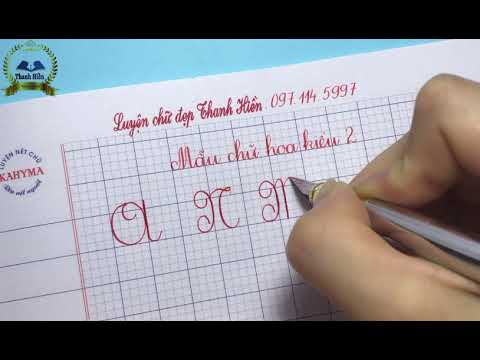 Thanh Hiền
Luyện chữ đẹp Thanh Hiền 097 114 5997
LUYỆN NÉT CHỮ
KAHYMA
Rèn nết người
Mẫu chữ hoa kiểu 2
A N